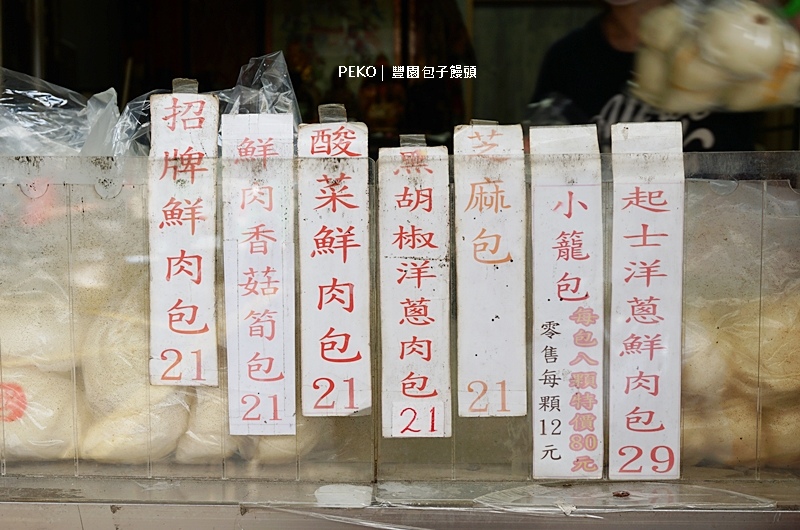 PEKO | 豐園包子饅頭
招牌鮮肉包 21
鮮肉香菇筍包 21
酸菜鮮肉包 21
黑胡椒洋蔥肉包 21
芝麻包 21
小籠包
每包八顆特價80元
零售每顆12元
起士洋蔥鮮肉包 29